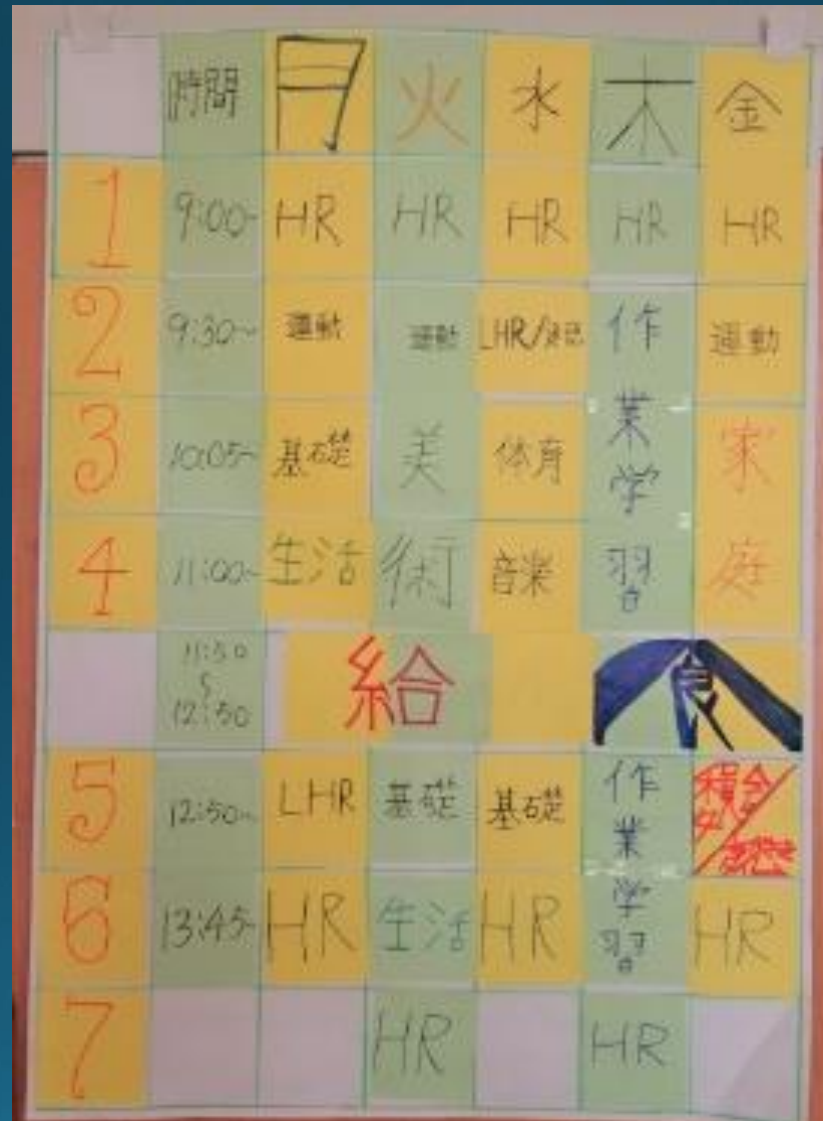 時間 月 火 水 木 金
1 9:00~ HR HR HR HR HR
2 9:30~ 運動 運動 LHR/ 作業学習 運動
3 10:05~ 基礎 美術 体育 家庭
4 11:00~ 生活 音楽
11:50
〜
12:50
給食
5 12:50~ LHR 基礎 基礎 作業学習
6 13:45~ HR 生活 HR HR
7 HR HR